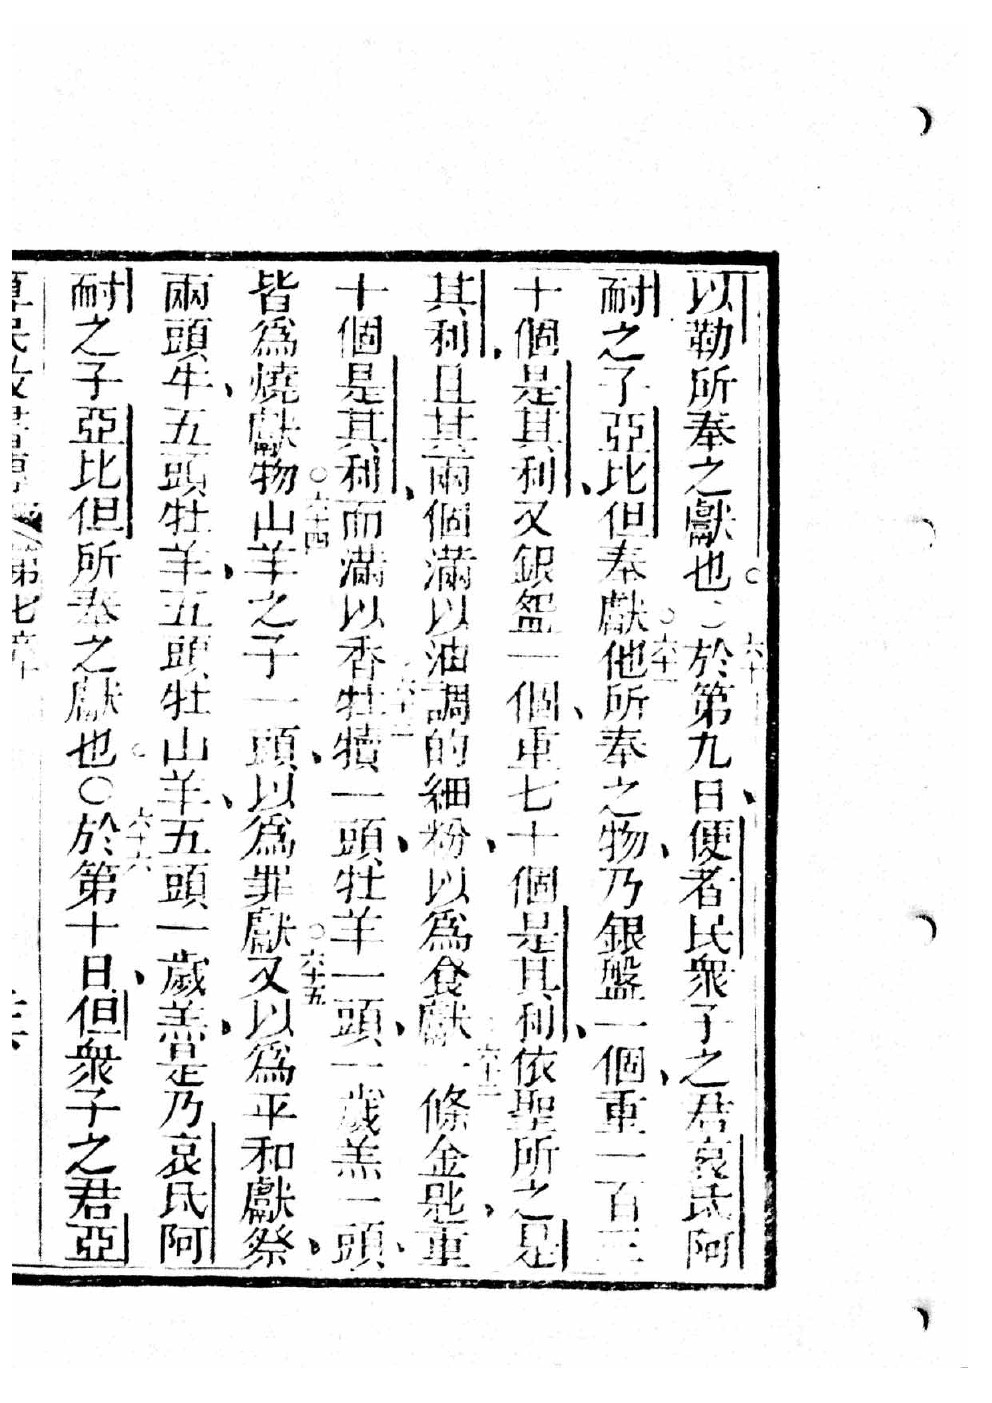 以勒所奉之獻也○六十於第九日便者民衆子之君哀氐阿
耐之子亞比但奉獻○六十一他所奉之物乃銀盤一個重一百三
十個是其利又銀盌一個重七十個是其利依聖所之是
其利且其兩個滿以油調的細粉以爲食獻○六十二一條金匙重
十個是其利而滿以香六十三牡犢一頭牡羊一頭一歲羔一頭
皆爲燒獻物○六十四山羊之子一頭以爲罪獻○六十五又以爲平和獻祭
兩頭牛五頭牡羊五頭牡山羊五頭一歲羔是乃哀氐阿
耐之子亞比但所奉之獻也○六十六於第十日但衆子之君亞
第七章